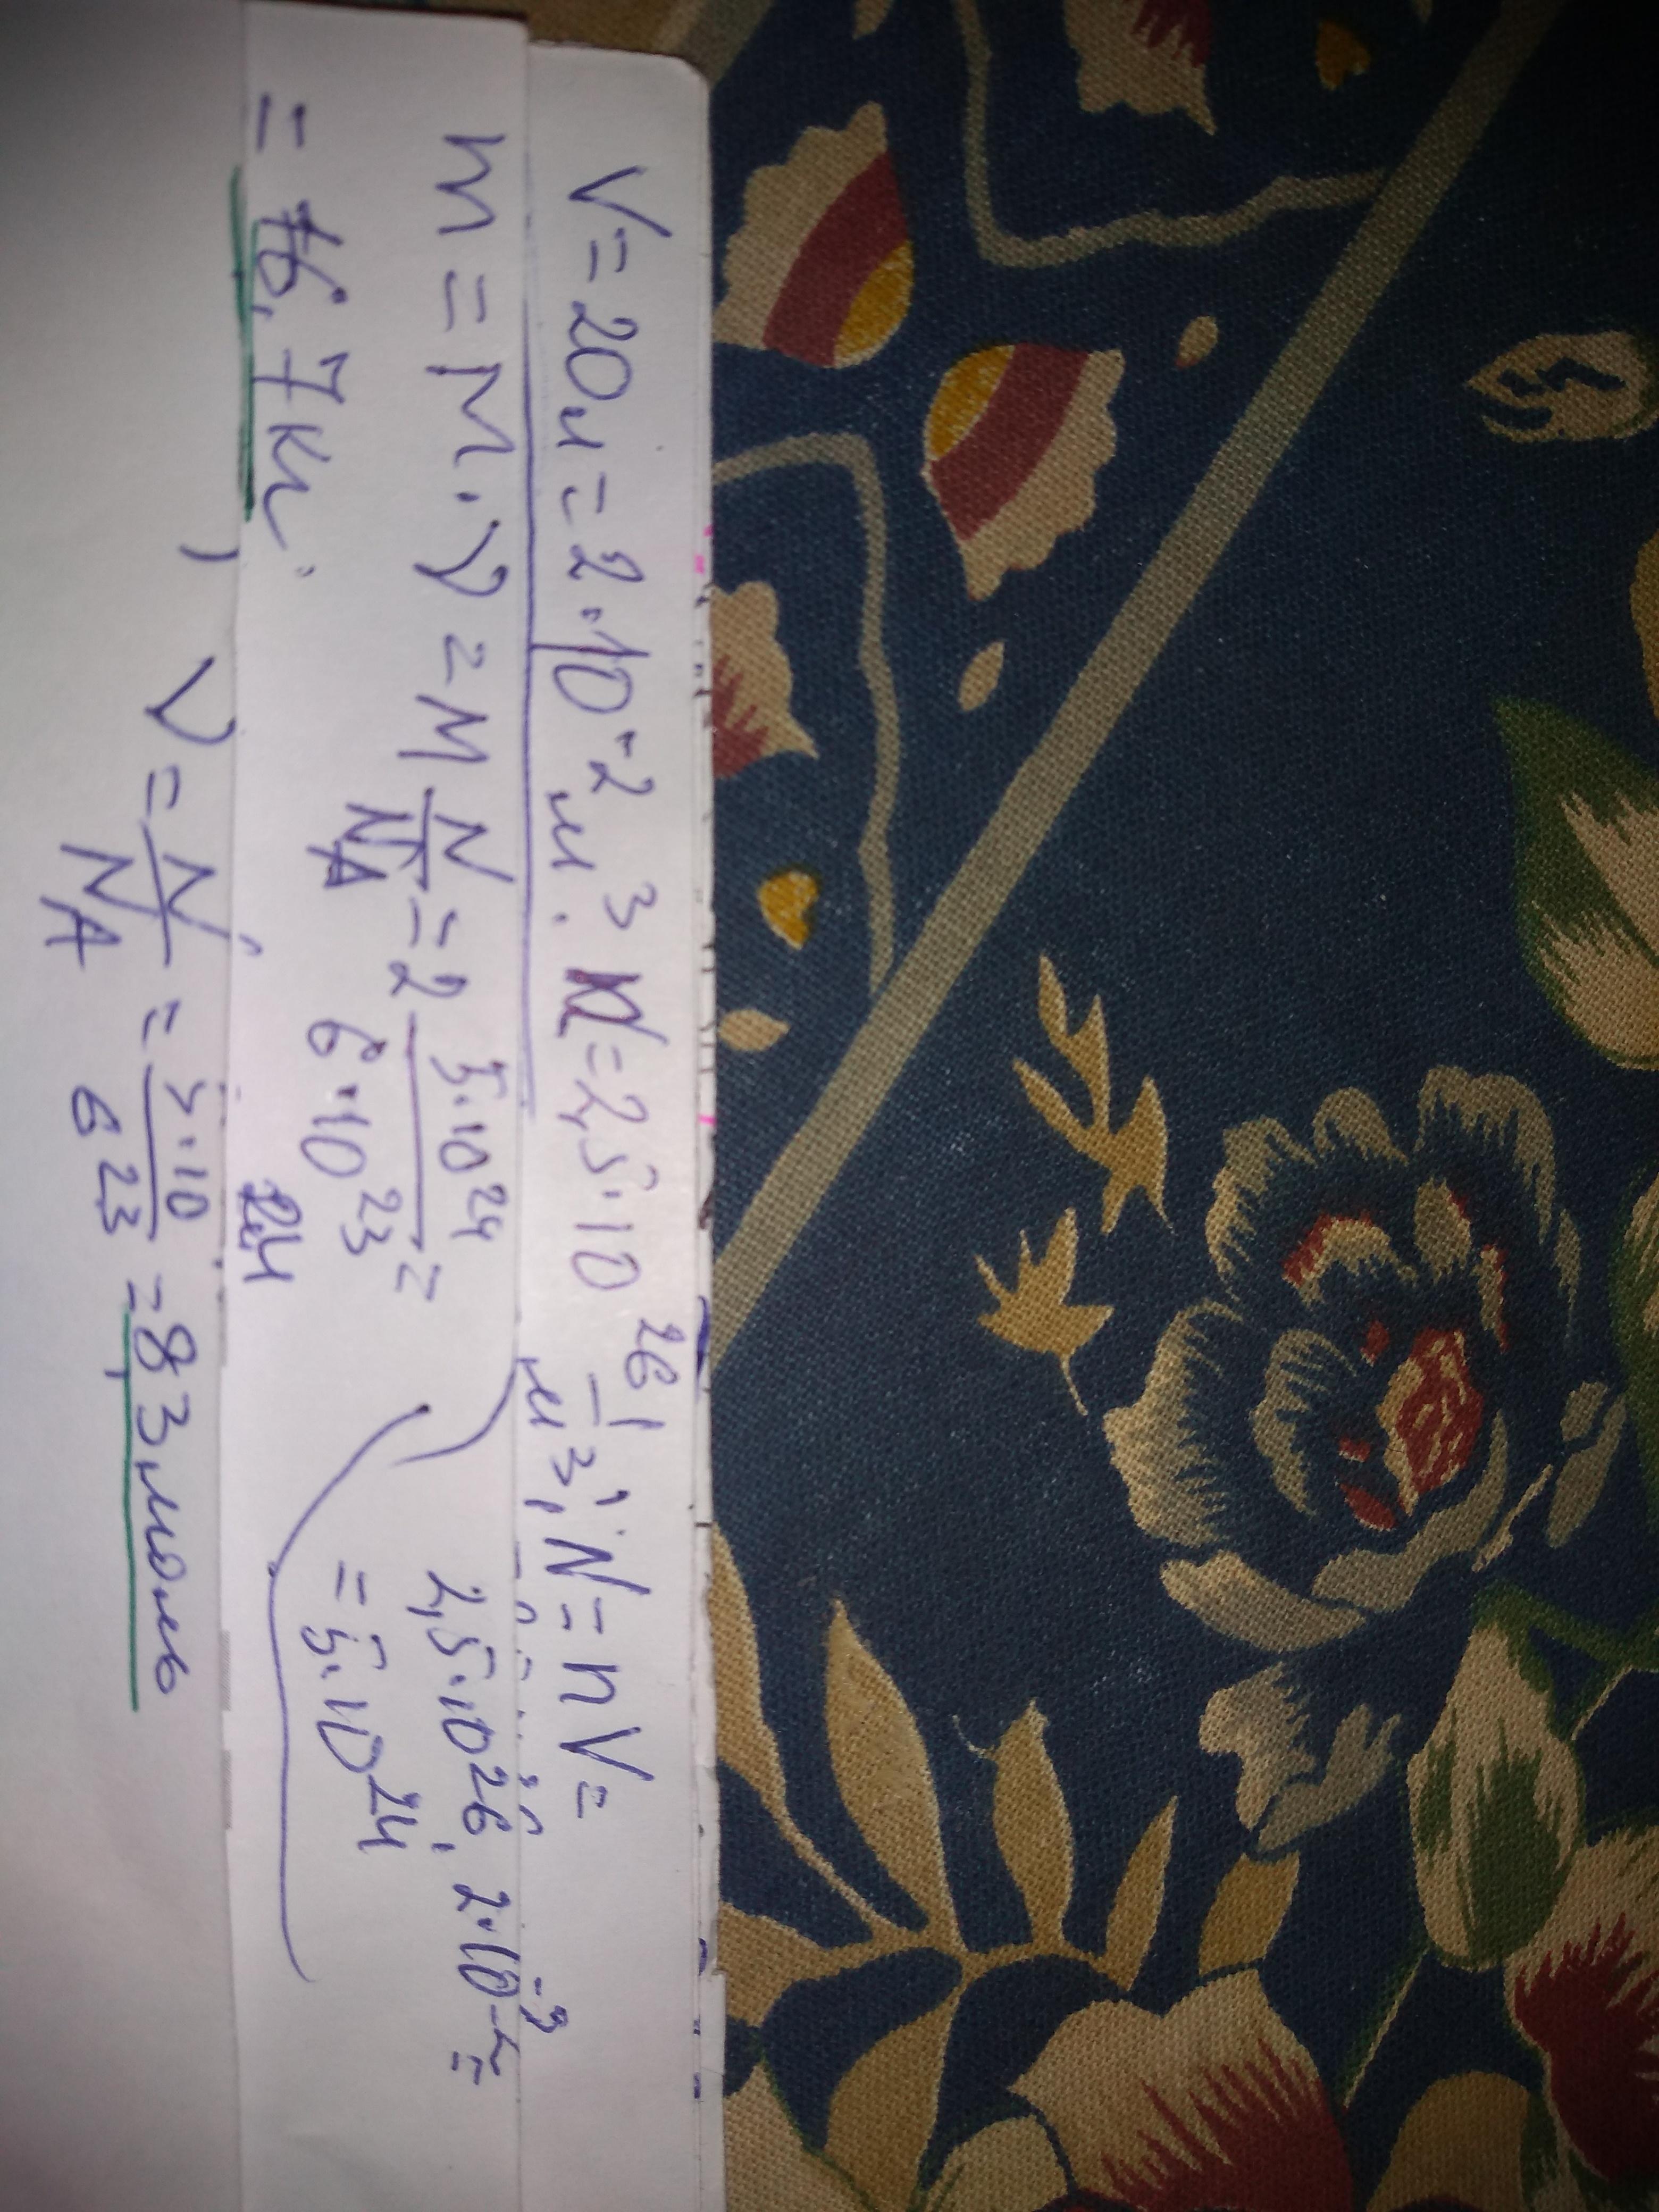 V=20л=2·10⁻² м³. n=2,5·10²⁶ 1/м³; N=nV=
2,5·10²⁶·2·10⁻²=
=5·10²⁴
m=M·ν=M N/N_A=2 5·10²⁴/6·10²³=
=16,7 кг.
ν=N/N_A=5·10/6²³=8,3 моль